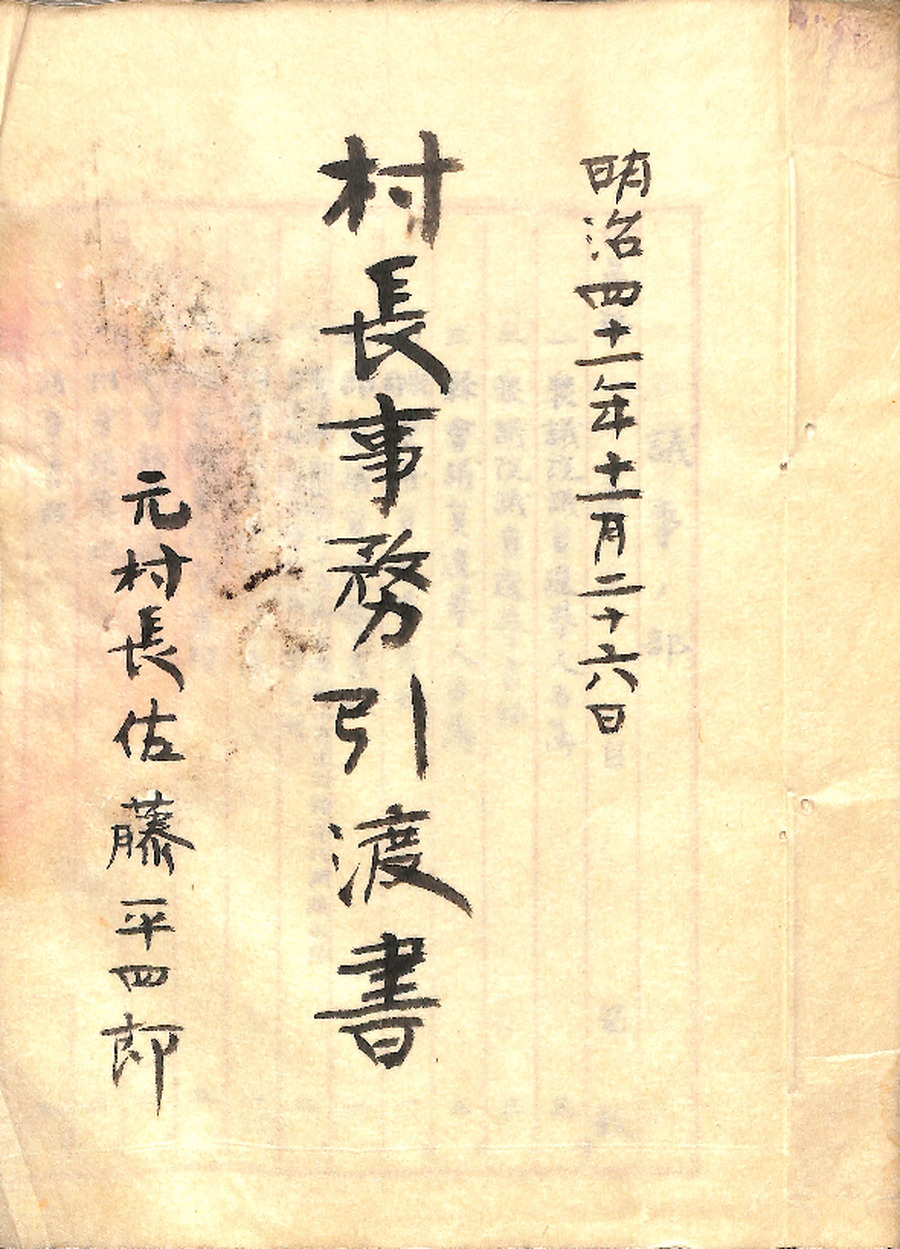 明治四十一年十一月二十六日
村長事務引渡書
元村長佐藤平四郎